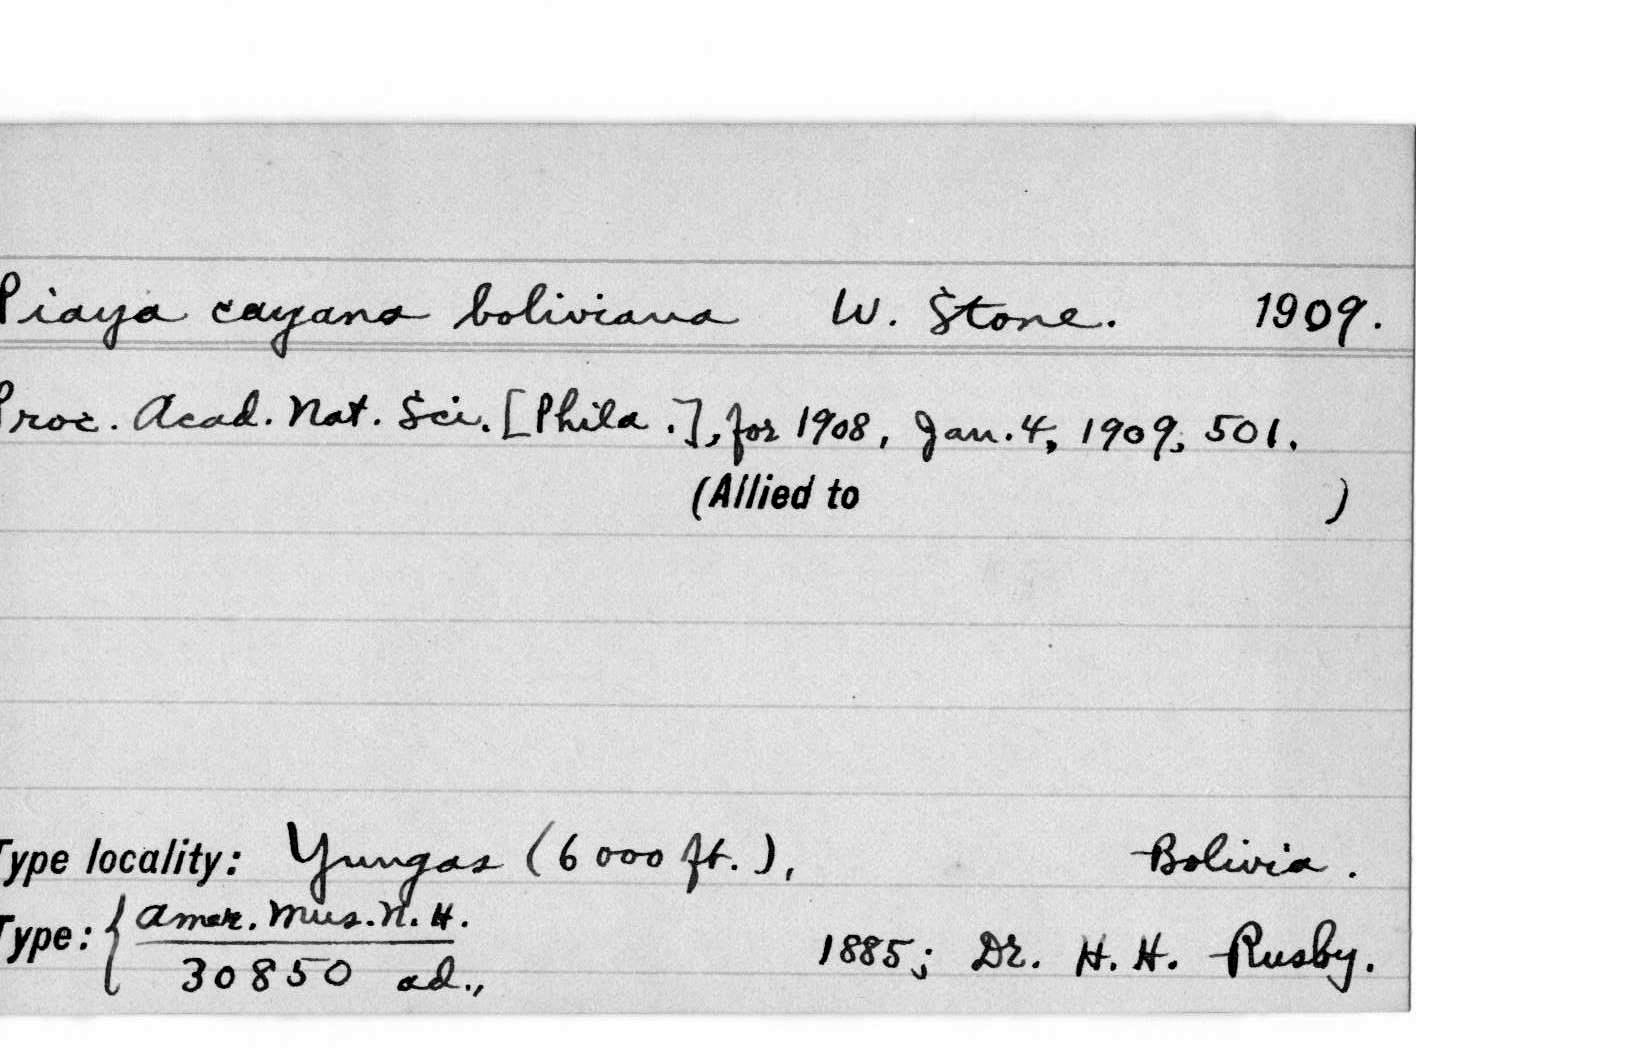 Piaya cayana boliviana W. Stone. 1909.
Proc. Acad. Nat. Sci. [Phila.], for 1908, Jan. 4, 1909, 501.
(Allied to )
Type locality: Yungas (6000 ft.), Bolivia.
Type: { Amer. Mus. N. H.
30850 ad., 1885; Dr. H. H. Rusby.